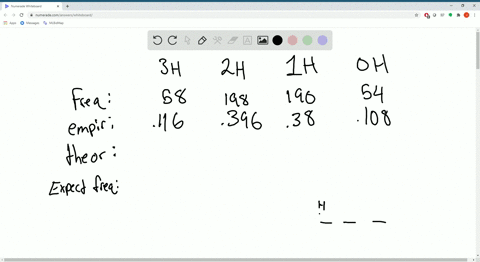 numerade.com/answers/whiteboard/
Apps
3H 2H 1H 0H
Freq: 58 198 190 54
empir: .116 .396 .38 .108
theor:
Expect freq:
H